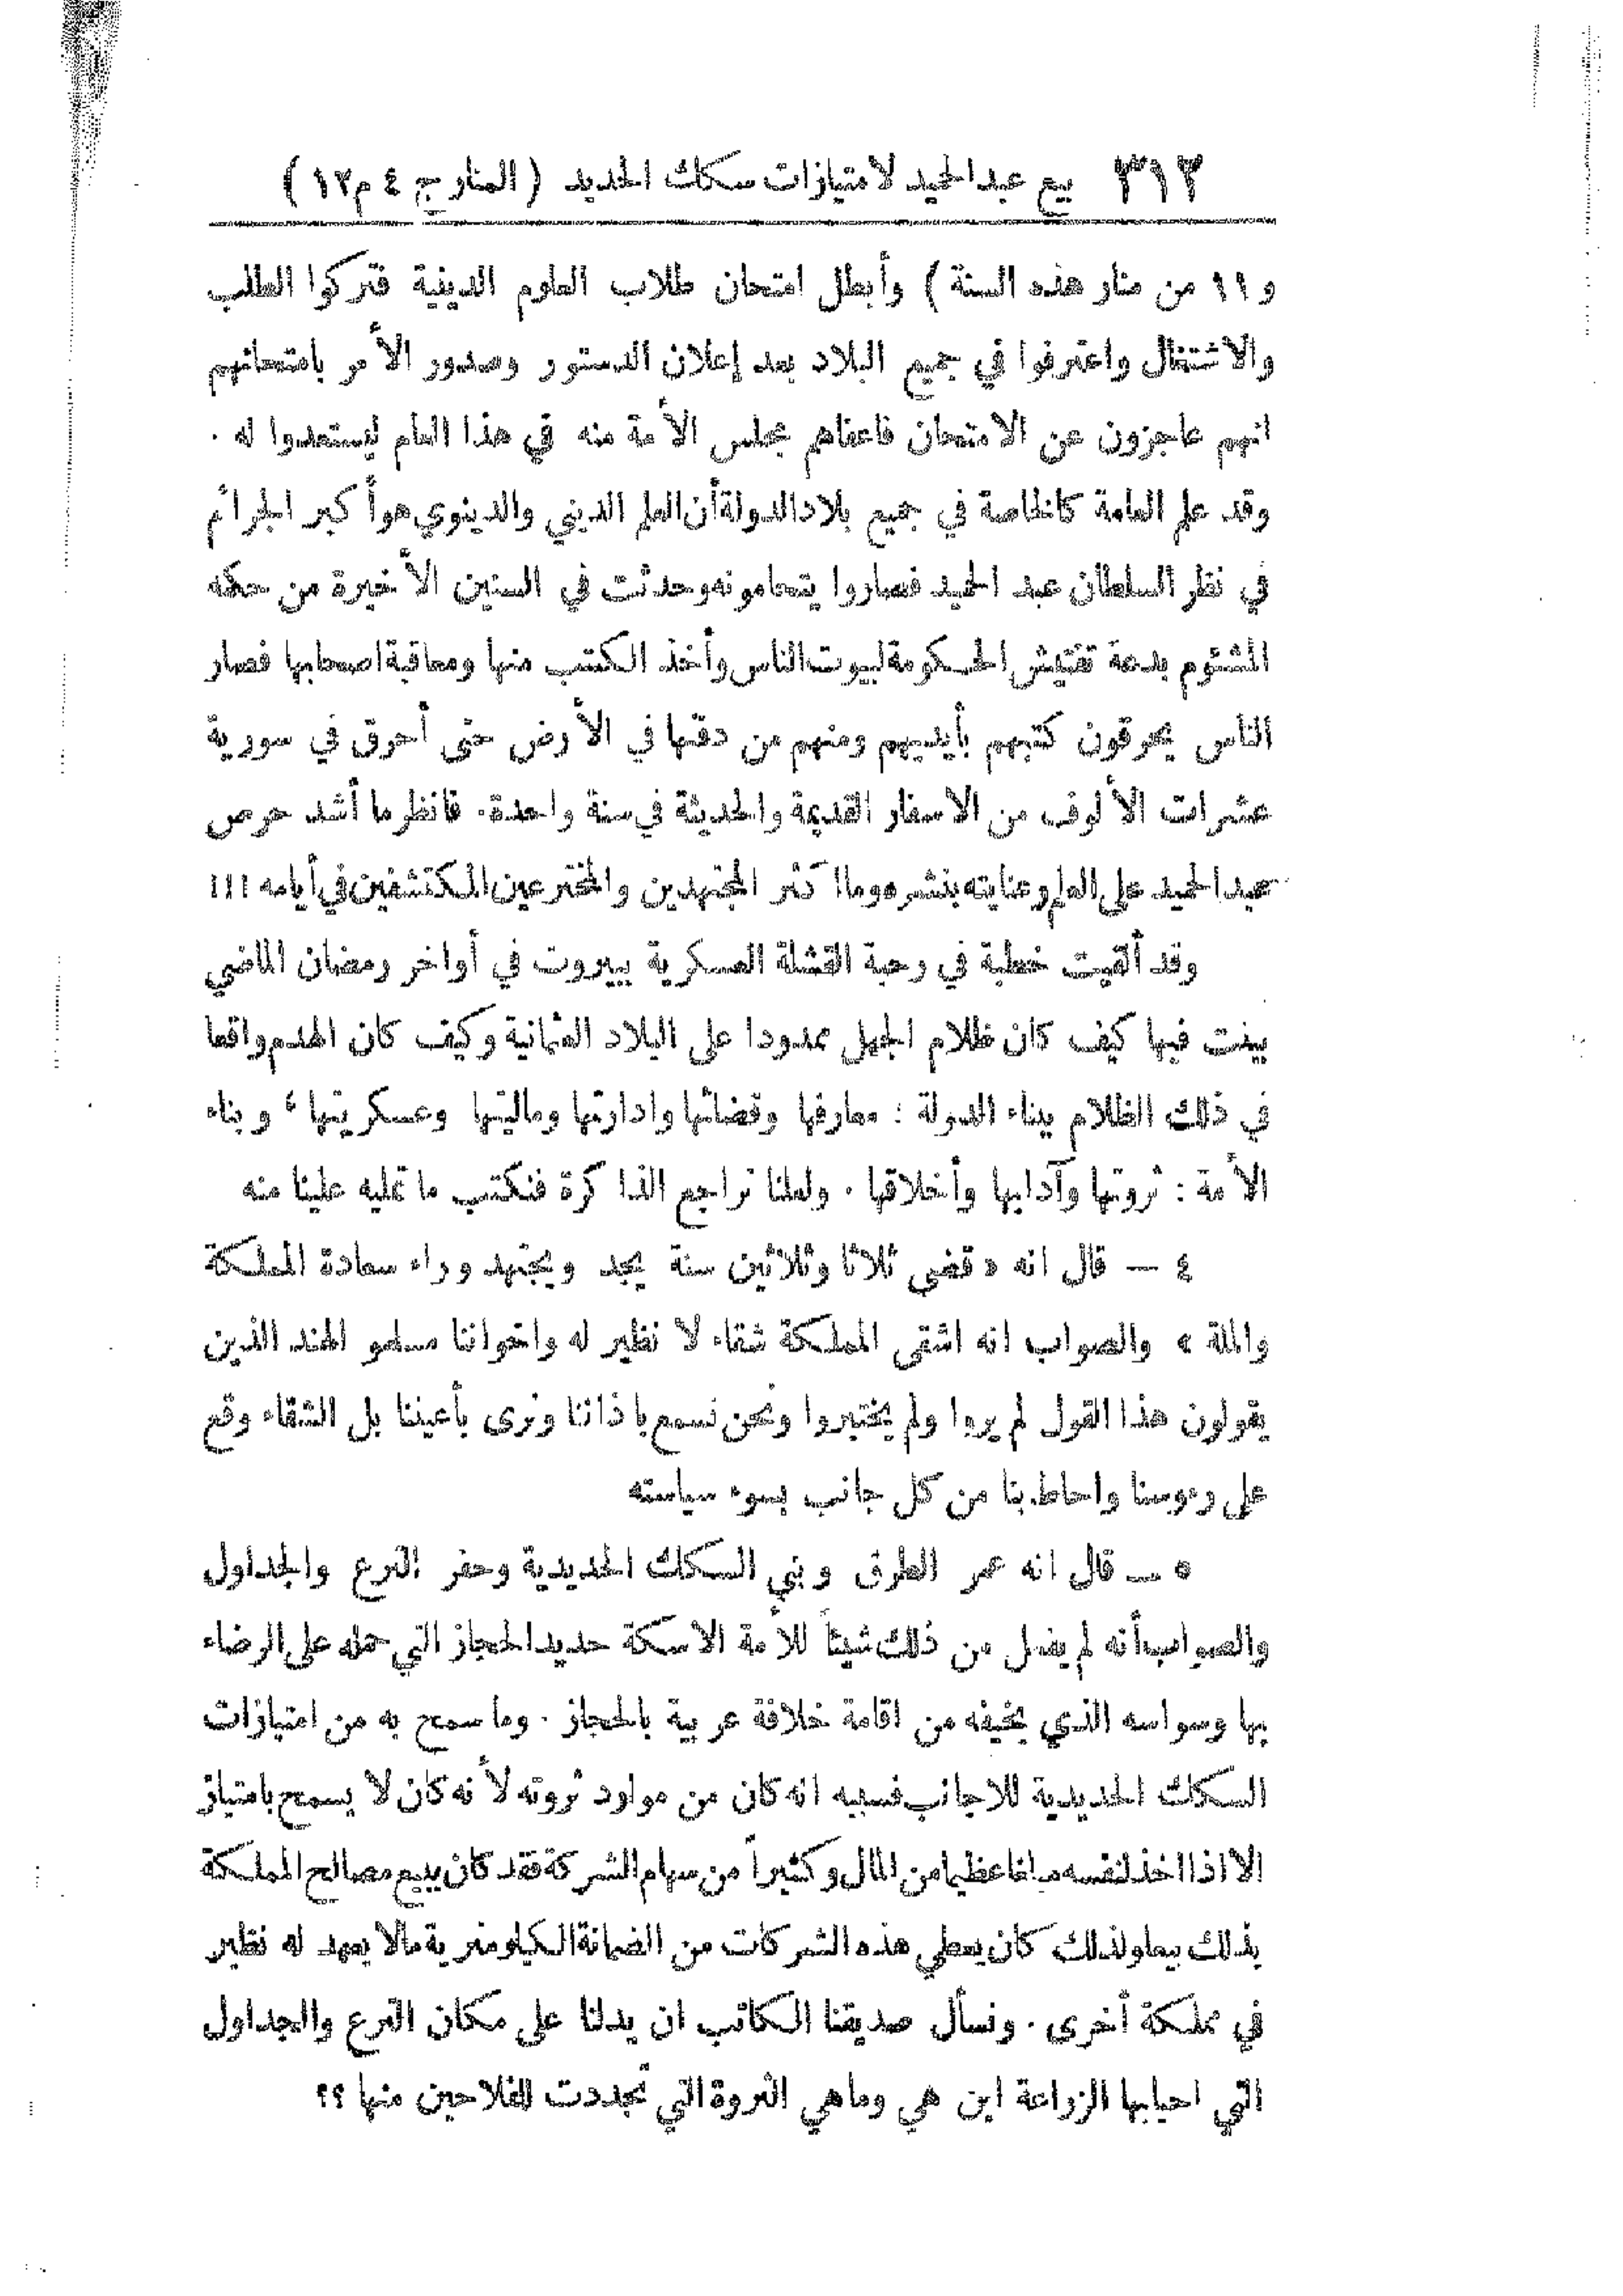 ٣١٢ بيع عبد الحميد لامتيازات سكك الحديد ( المنار ج ٤ م ١٢ )
و ١١ من منار هذه السنة ) وأبطل امتحان طلاب العلوم الدينية فتركوا الطلب
والاشتغال واعترفوا في جميع البلاد بعد إعلان الدستور وصدور الأمر بامتحانهم
انهم عاجزون عن الامتحان فاعفاهم مجلس الأمة منه في هذا العام ليستعدوا له .
وقد علم العامة كالخاصة في جميع بلاد الدولة أن العلم الديني والدينوي هو أكبر الجرائم
في نظر السلطان عبد الحميد فصاروا يتحامونه وحدثت في السنين الأخيرة من حكمه
المشئوم بدعة تفتيش الحكومة لبيوت الناس وأخذ الكتب منها ومعاقبة اصحابها فصار
الناس يحرقون كتبهم بأيديهم ومنهم من دفنها في الأرض حتى أحرق في سورية
عشرات الألوف من الاسفار القديمة والحديثة في سنة واحدة . فانظر ما أشد حرص
عبد الحميد على العلم وعنايته بنشره وما اكثر المجتهدين والمخترعين المكتشفين في أيامه !!!
وقد ألقيت خطبة في رحبة القشلة العسكرية ببيروت في أواخر رمضان الماضي
بينت فيها كيف كان ظلام الجهل ممدودا على البلاد العثمانية وكيف كان الهدم واقعا
في ذلك الظلام ببناء الدولة : معارفها وقضائها وادارتها وماليتها وعسكريتها ، وبناء
الأمة : ثروتها وآدابها وأخلاقها . ولعلنا نراجع الذاكرة فنكتب ما تمليه علينا منه
٤ — قال انه « قضى ثلاثا وثلاثين سنة يجد ويجتهد وراء سعادة المملكة
والملة » والصواب انه اشقى المملكة شقاء لا نظير له واخواننا مسلمو الهند الذين
يقولون هذا القول لم يروا ولم يختبروا ونحن نسمع باذاننا ونرى بأعيننا بل الشقاء وقع
على رءوسنا واحاط بنا من كل جانب بسوء سياسته
٥ — قال انه عمر الطرق وبنى السكك الحديدية وحفر الترع والجداول
والصواب أنه لم يفعل من ذلك شيئاً للأمة الا سكة حديد الحجاز التي حمله على الرضاء
بها وسواسه الذي يخيفه من اقامة خلافة عربية بالحجاز . وما سمح به من امتيازات
السكك الحديدية للاجانب فسببه انه كان من موارد ثروته لأنه كان لا يسمح بامتياز
الا اذا اخذ لنفسه مبلغا عظيما من المال وكثيراً من سهام الشركة فقد كان يبيع مصالح المملكة
بذلك بيعا ولذلك كان يعطي هذه الشركات من الضمانة الكيلومترية مالا يعهد له نظير
في مملكة أخرى . ونسأل صديقنا الكاتب ان يدلنا على مكان الترع والجداول
التي احيا بها الزراعة اين هي وما هي الثروة التي تجددت للفلاحين منها ؟؟